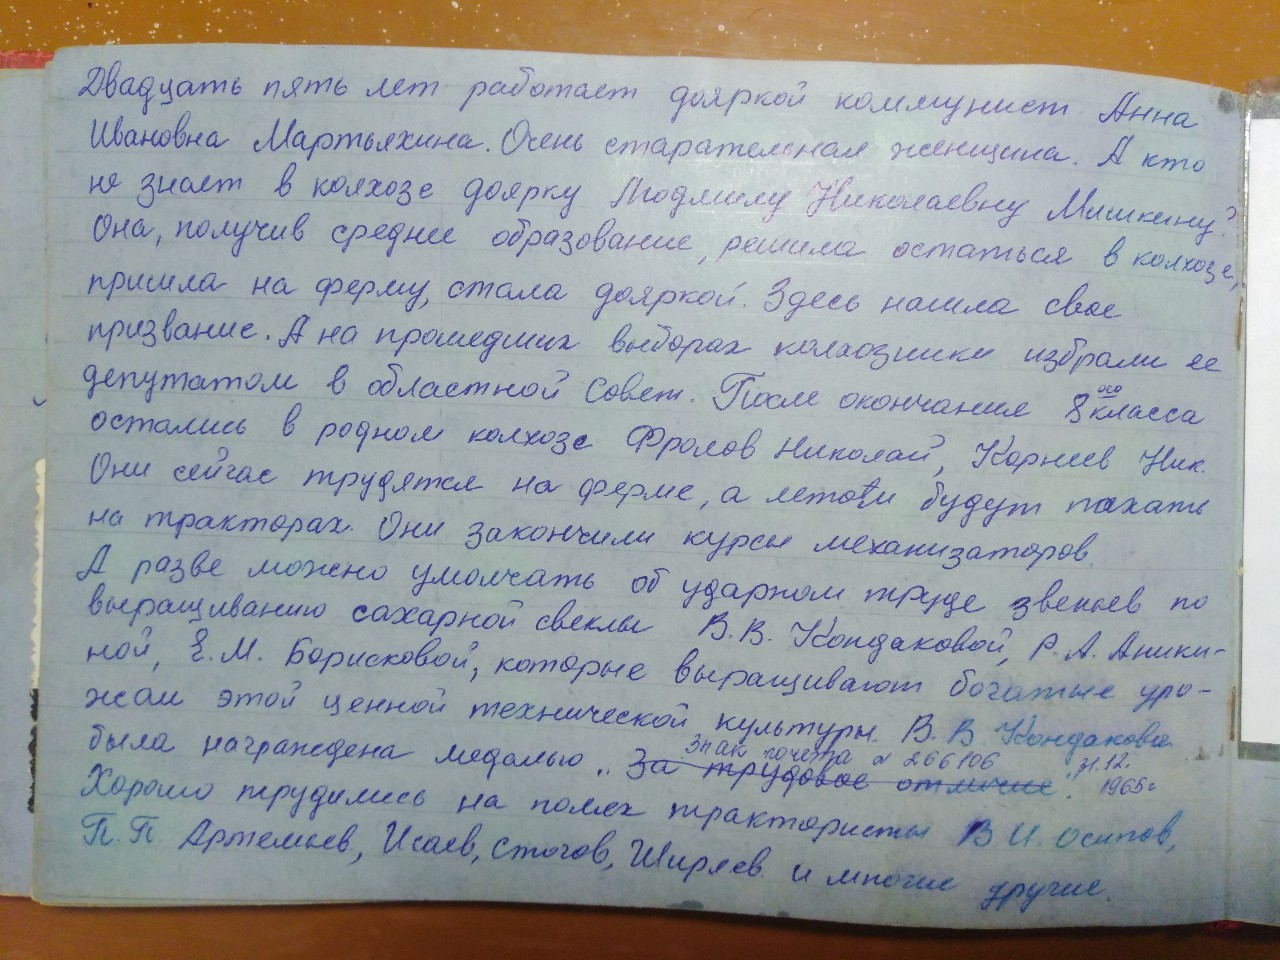 Двадцать пять лет работает дояркой коммунист Анна
Ивановна Мартьяхина. Очень старательная женщина. А кто
не знает в колхозе доярку Людмилу Николаевну Мишкину?
Она, получив среднее образование, решила остаться в колхозе,
пришла на ферму, стала дояркой. Здесь нашла свое
призвание. А на прошедших выборах колхозники избрали ее
депутатом в областной Совет. После окончания 8 класса
остались в родном колхозе Фролов Николай, Корнеев Ник.
Они сейчас трудятся на ферме, а летом будут пахать
на тракторах. Они закончили курсы механизаторов.
А разве можно умолчать об ударном труде звеньев по
выращиванию сахарной свеклы В.В. Кондаковой, Р.А. Аники-
ной, Е.М. Борисковой, которые выращивают богатые уро-
жаи этой ценной технической культуры. В.В. Кондакова
Знак почета № 266106 31.12.
была награждена медалью „За трудовое отличие". 1965г
Хорошо трудились на полях трактористы В И. Осипов,
П.П Артемьев, Исаев, Стогов, Ширяев и многие другие.